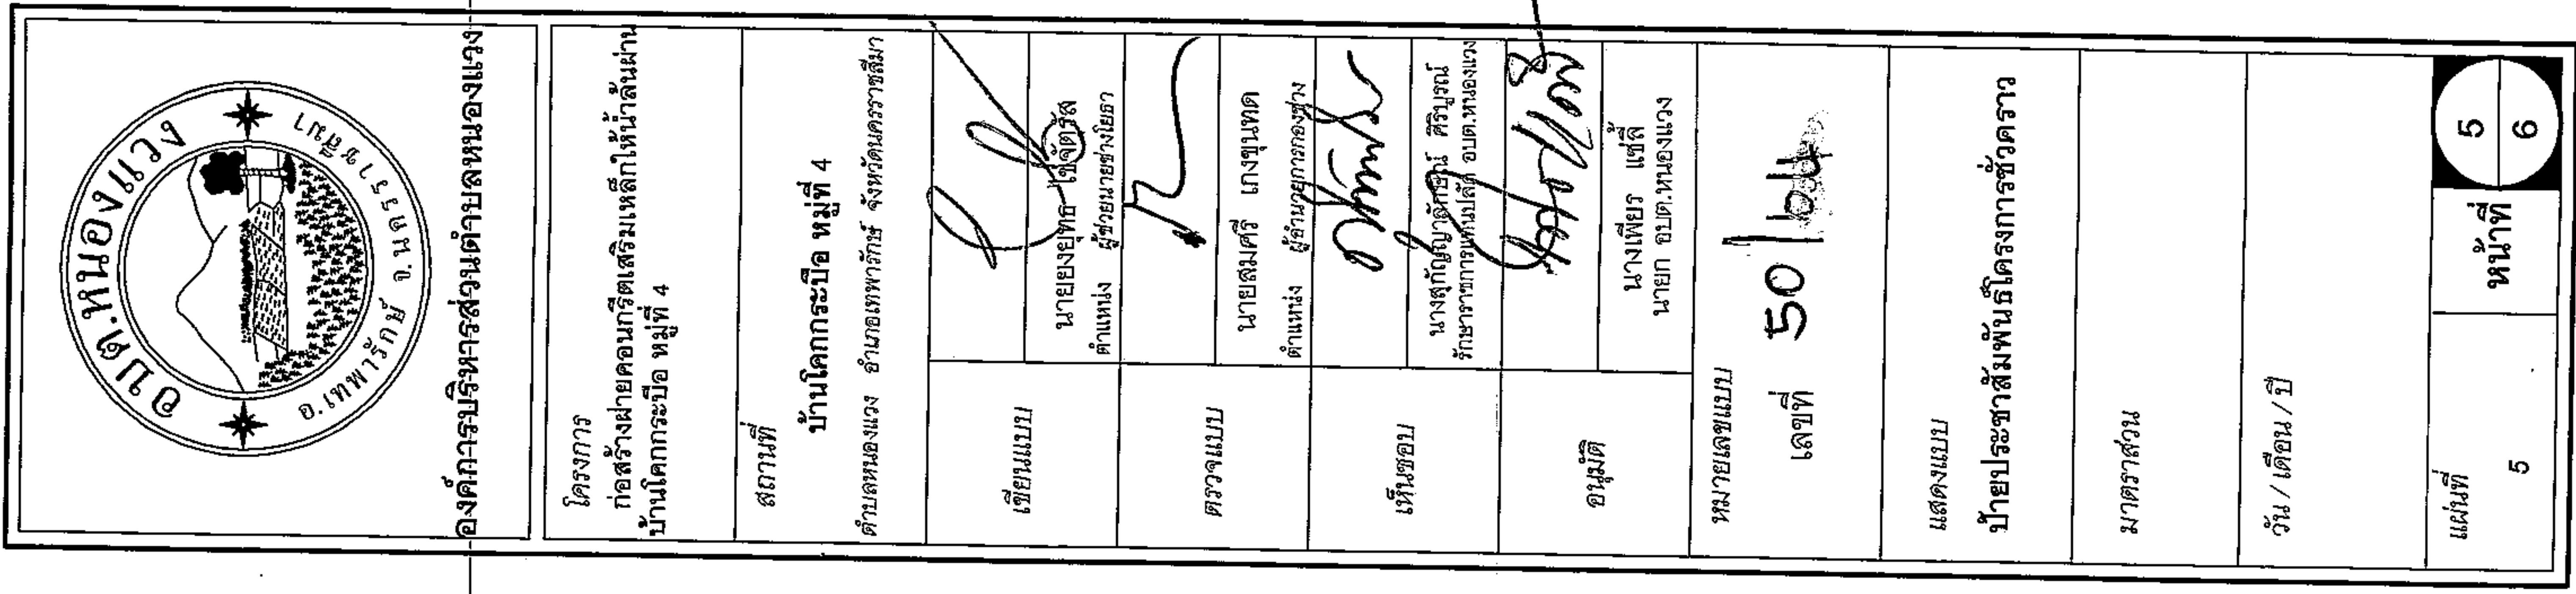 อบต.หนองแวง
อ.เทพารักษ์ จ.นครราชสีมา
องค์การบริหารส่วนตำบลหนองแวง
โครงการ
ก่อสร้างฝายคอนกรีตเสริมเหล็กให้น้ำล้นผ่าน
บ้านโคกกระบือ หมู่ที่ 4
สถานที่
บ้านโคกกระบือ หมู่ที่ 4
ตำบลหนองแวง อำเภอเทพารักษ์ จังหวัดนครราชสีมา
เขียนแบบ
นายยงยุทธ ไขจัตุรัส
ตำแหน่ง ผู้ช่วยนายช่างโยธา
ตรวจแบบ
นายสมศรี เกงขุนทด
ตำแหน่ง ผู้อำนวยการกองช่าง
เห็นชอบ
นางสุกัญญาลักษณ์ ศิริบูรณ์
รักษาราชการแทนปลัด อบต.หนองแวง
อนุมัติ
นางเพียร แซ่ลี้
นายก อบต.หนองแวง
หมายเลขแบบ
เลขที่ 50/64
แสดงแบบ
ป้ายประชาสัมพันธ์โครงการชั่วคราว
มาตราส่วน
วัน / เดือน / ปี
แผ่นที่
5
หน้าที่
5
6